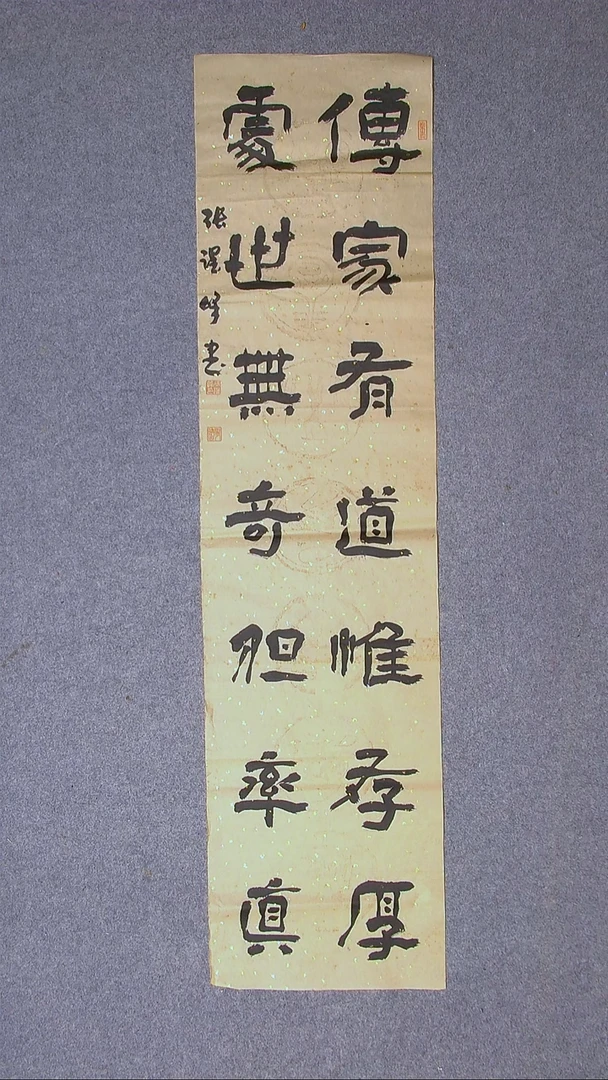 傳家有道惟存厚
處世無奇胆率真
張 峰書